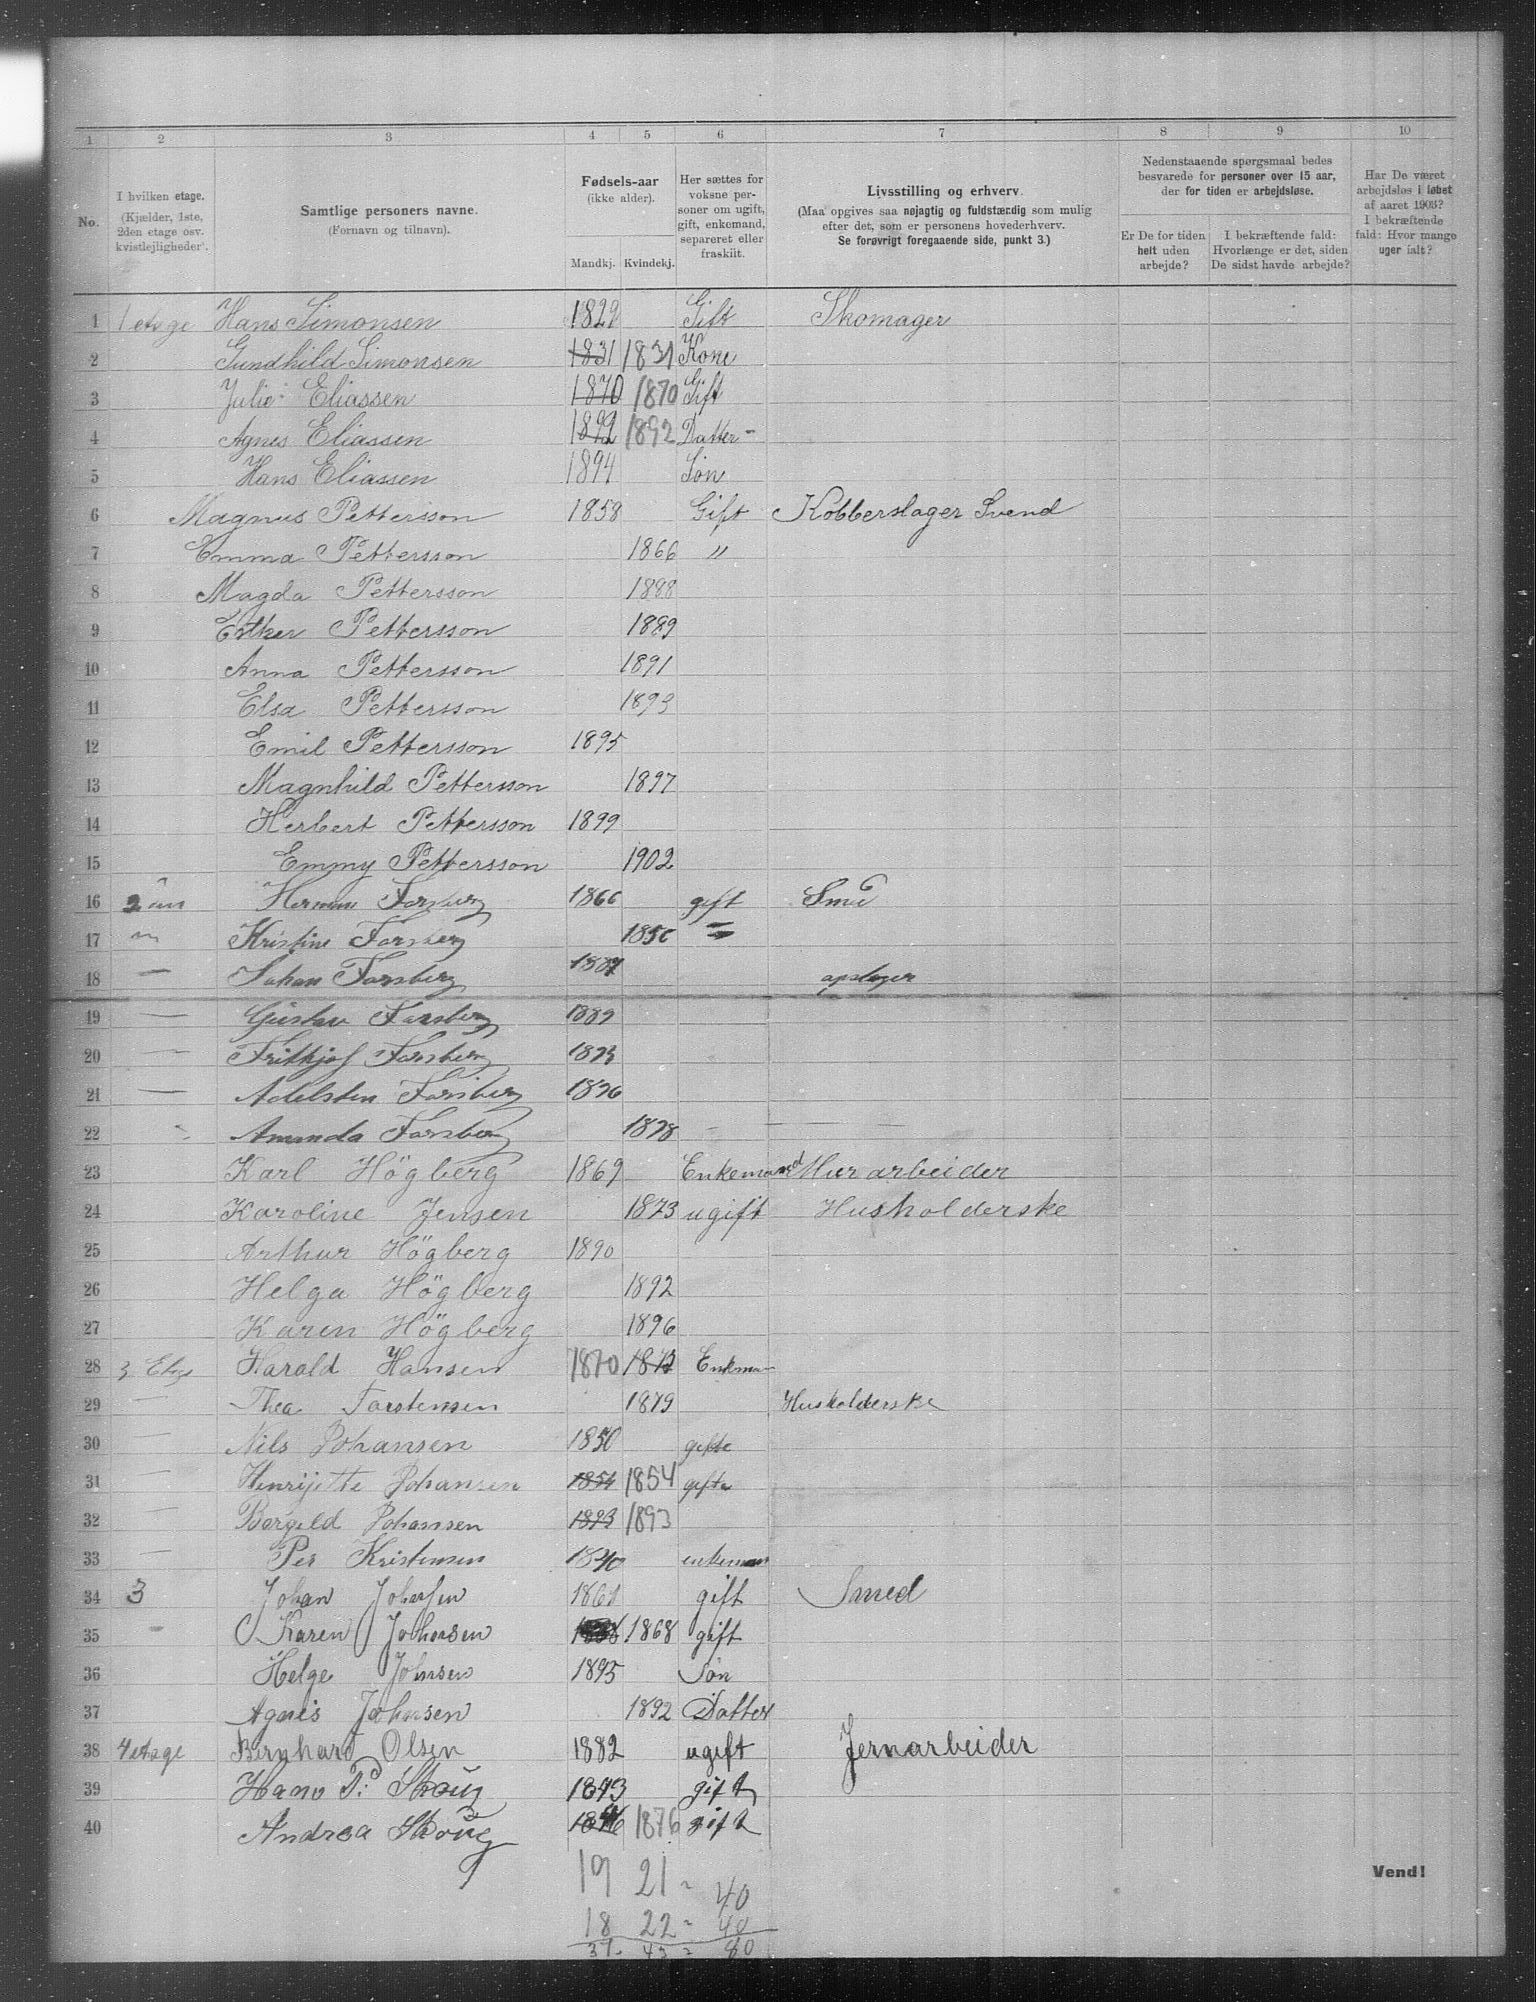 1 2 3 4 5 6 7 8 9 10
No.
I hvilken etage. (Kjælder, 1ste, 2den etage osv. kvistlejligheder).
Samtlige personers navne. (Fornavn og tilnavn).
Fødsels-aar (ikke alder). Mandkj. Kvindekj.
Her sættes for voksne personer om ugift, gift, enkemand, separeret eller fraskilt.
Livsstilling og erhverv. (Maa opgives saa nøjagtig og fuldstændig som mulig efter det, som er personens hovederhverv. Se forøvrigt foregaaende side, punkt 3.)
Nedenstaaende spørgsmaal bedes besvarede for personer over 15 aar, der for tiden er arbejdsløse.
Er De for tiden helt uden arbejde?
I bekræftende fald: Hvorlænge er det, siden De sidst havde arbejde?
Har De været arbejdsløs i løbet af aaret 1903? I bekræftende fald: Hvor mange uger ialt?
1 1 etage Hans Simonsen 1829 Gift Skomager
2 Gundhild Simonsen 1831 1831 Kone
3 Julie Eliassen 1870 1870 Gift
4 Agnes Eliassen 1892 1892 Datter
5 Hans Eliassen 1894 Søn
6 Magnus Pettersson 1858 Gift Kobberslager Svend
7 Emma Pettersson 1866 "
8 Magda Pettersson 1888
9 Esther Pettersson 1889
10 Anna Pettersson 1891
11 Elsa Pettersson 1893
12 Emil Pettersson 1895
13 Magnhild Pettersson 1897
14 Herbert Pettersson 1899
15 Emmy Pettersson 1902
16 Herman Forsberg 1866 gift Smed
17 Kristine Forsberg
18 Johan Forsberg
19 — Gustav Forsberg 1889
20 — Frithjof Forsberg 1893
21 — Adelsten Forsberg 1896
22 Amanda Forsberg 1898
23 Karl Högberg 1869 Enkemand Murarbeider
24 Karoline Jensen 1873 ugift Husholderske
25 Arthur Högberg 1890
26 Helga Högberg 1892
27 Karen Högberg 1896
28 3 Etg Harald Hansen 1870 Enkeman
29 — Thea Torstensen 1879 Husholderske
30 — Nils Johansen 1850 gifte
31 — Henrijette Johansen 1854 1854 gifte
32 — Borgeld Johansen 1893 1893
33 — Per Kristensen 1840 enkeman
34 3 Johan Johansen 1861 gift Smed
35 - Karen Johansen 1868 gift
36 Helge Johnsen 1895 Søn
37 Agnes Johnsen 1892 Datter
38 4 etage Bernhard Olsen 1882 ugift Jernarbeider
39 Hans P. Skoug 1873 gift
40 Andrea Skoug 1876 1876 gift
19 21 - 40
18 22 - 40
37 - 43 = 80
Vend!